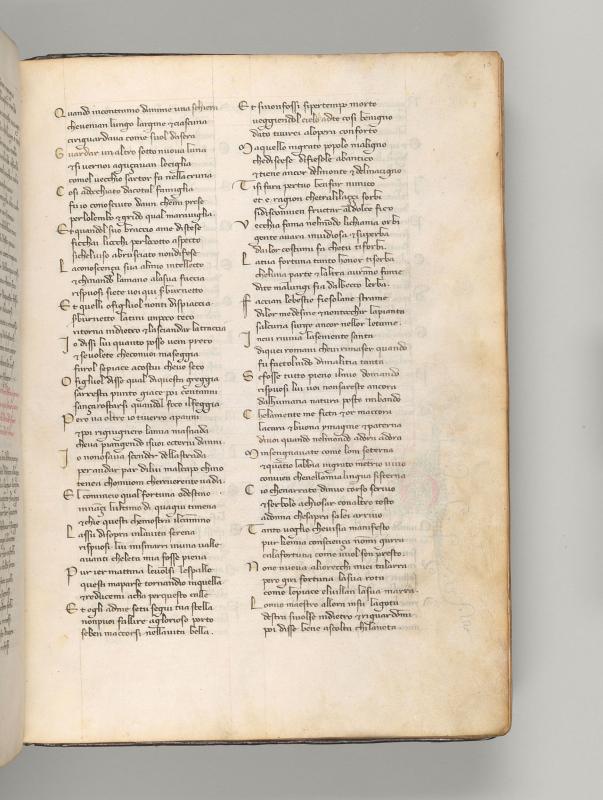 Quando incontramo danime una schiera
chevenian lungo largine e ciascuna
ciriguardava come suol dasera
Guardar un altro sotto nuova luna
e si vernoi aguzavan leciglia
comel vecchio sartor fa nella cruna
Cosi adocchiato dacotal famiglia
fu io conosciuto daun chemi prese
perlolembo e grido qual maraviglia
Et quandol suo braccio ame distese
ficchai liocchi perlocotto aspecto
sichelviso abrusciato nondifese
La conoscenza sua almio intellecto
e chinando lamano alasua faccia
rispuosi siete voi qui ser brunetto
Et quelli ofigliuol nonti dispiaccia
se brunetto latini unpoco teco
ritorna indietro e lasciandar latraccia
Io dissi lui quanto posso ven preco
e sevolete checonvoi masseggia
farol sepiace acostui chevo seco
O figliuol disse qual diquesta greggia
sarresta punto giace poi centanni
sanzarostarsi quandol foco ilfeggia
Pero va oltre io tiverro apanni
e poi rigiugnero lamia masnada
cheva piangendo isuoi ecterni danni
Io nonosava scender dellastrada
per andar par dilui malcapo chino
tenea chomuom chereverente vada
El comincio qual fortuna odestino
innanzi lultimo di quagiu timena
e chie questi chemostra ilcamino
Lassu disopra inlavita serena
rispuosi lui mismarri inuna valle
avanti cheleta mia fosse piena
Pur ier mattina levolsi lespalle
questi maparse tornandio inquella
e reducemi aca perquesto calle
Et ogli adme se tu segui tua stella
nonpuoi fallire aglorioso porto
seben maccorsi nellavita bella
Et sinonfossi sipertempo morto
veggiendol cielo adte cosi benigno
dato tavrei alopera conforto
Ma quello ingrato popolo maligno
chediscese difiesole abantico
e tiene ancor delmonte e delmacigno
Tisi fara pertuo benfar nimico
et e ragion chetralilazzi sorbi
sidisconvien fructar aldolce fico
Vecchia fama nelmondo lichiama orbi
gente avara invidiosa e superba
dailor costumi fa chetu tiforbi
La tua fortuna tanto honor tiserba
cheluna parte e laltra avranno fame
dite malungi fia dalbecco lerba
Faccian lebestie fiesolane strame
dilor medesme e nontocchin lapianta
salcuna surge ancor nellor letame
Incui riviva lasemente santa
diquei romani cheвi rimaser quando
fu factolnido dimalitia tanta
Se fosse tutto pieno ilmio domando
rispuosi lui voi nonsareste ancora
dallhumana natura posto inbando
Chelamente me ficta e or maccora
lacara e buona ymagine e paterna
divoi quando nelmondo adora adora
Minsegnavate come lom seterna
e quanto labbia ingrato metro vivo
convien chenellamia lingua siscerna
Cio chenarrate dimio corso scrivo
e serbolo achiosar conaltro testo
adonna chesapra salei arrivo
Tanto voglio chevisia manifesto
pur kemia conscienza nomi garra
cala fortuna come vuol son presto
None nuova aliorecchi miei talarra
pero giri fortuna lasua rota
come lepiace elvillan lasua marra
Lomio maestro allora insu lagota
destra sivolse indietro e riguardomi
poi disse bene ascolta chilanota